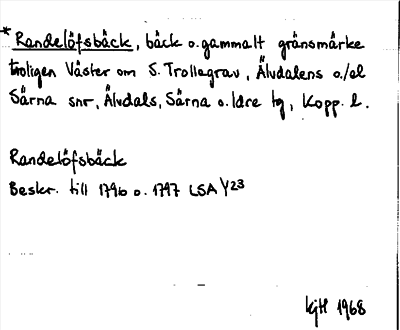 * Randelöfsbäck, bäck o. gammalt gränsmärke
troligen Väster om S. Trollegrav, Älvdalens o./el
Särna snr, Älvdals, Särna o. Idre tg, Kopp. l.
Randelöfsbäck
Beskr. till 1796 o. 1797 LSA Y23
KjH 1968